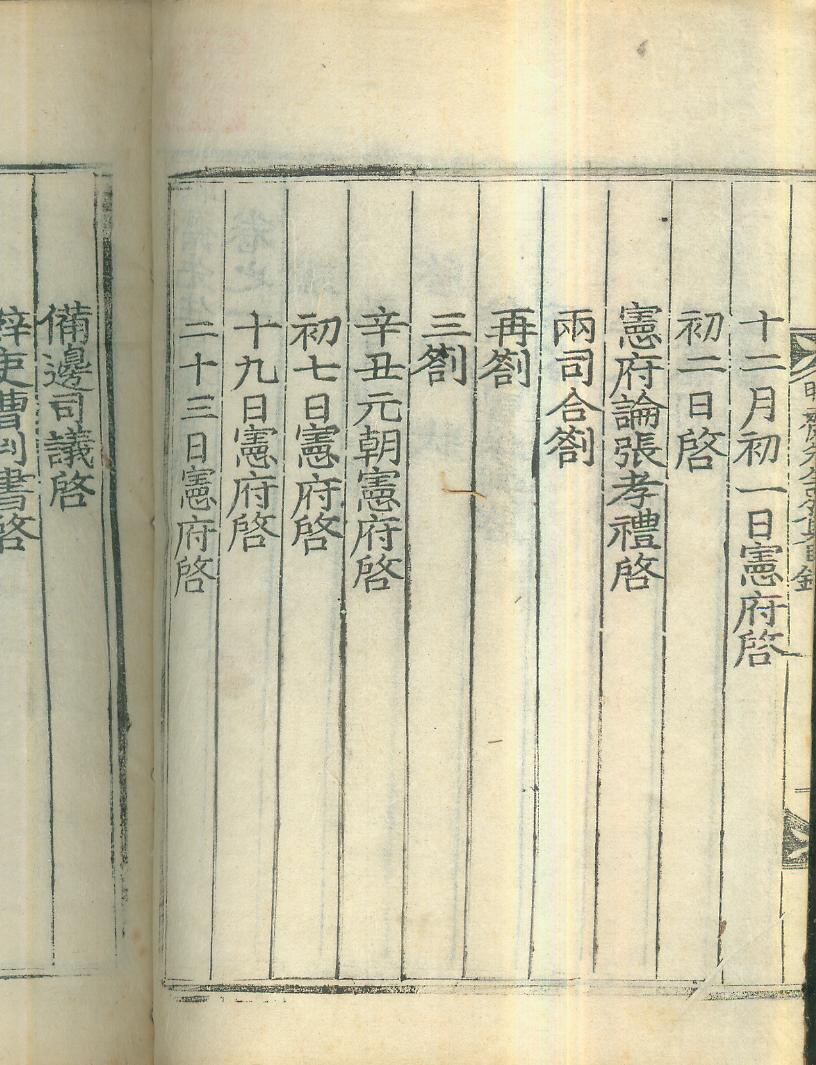 十二月初一日憲府啓
初二日啓
憲府論張孝禮啓
兩司合劄
再劄
三劄
辛丑元朝憲府啓
初七日憲府啓
十九日憲府啓
二十三日憲府啓
備邊司議啓
辭吏曹判書啓